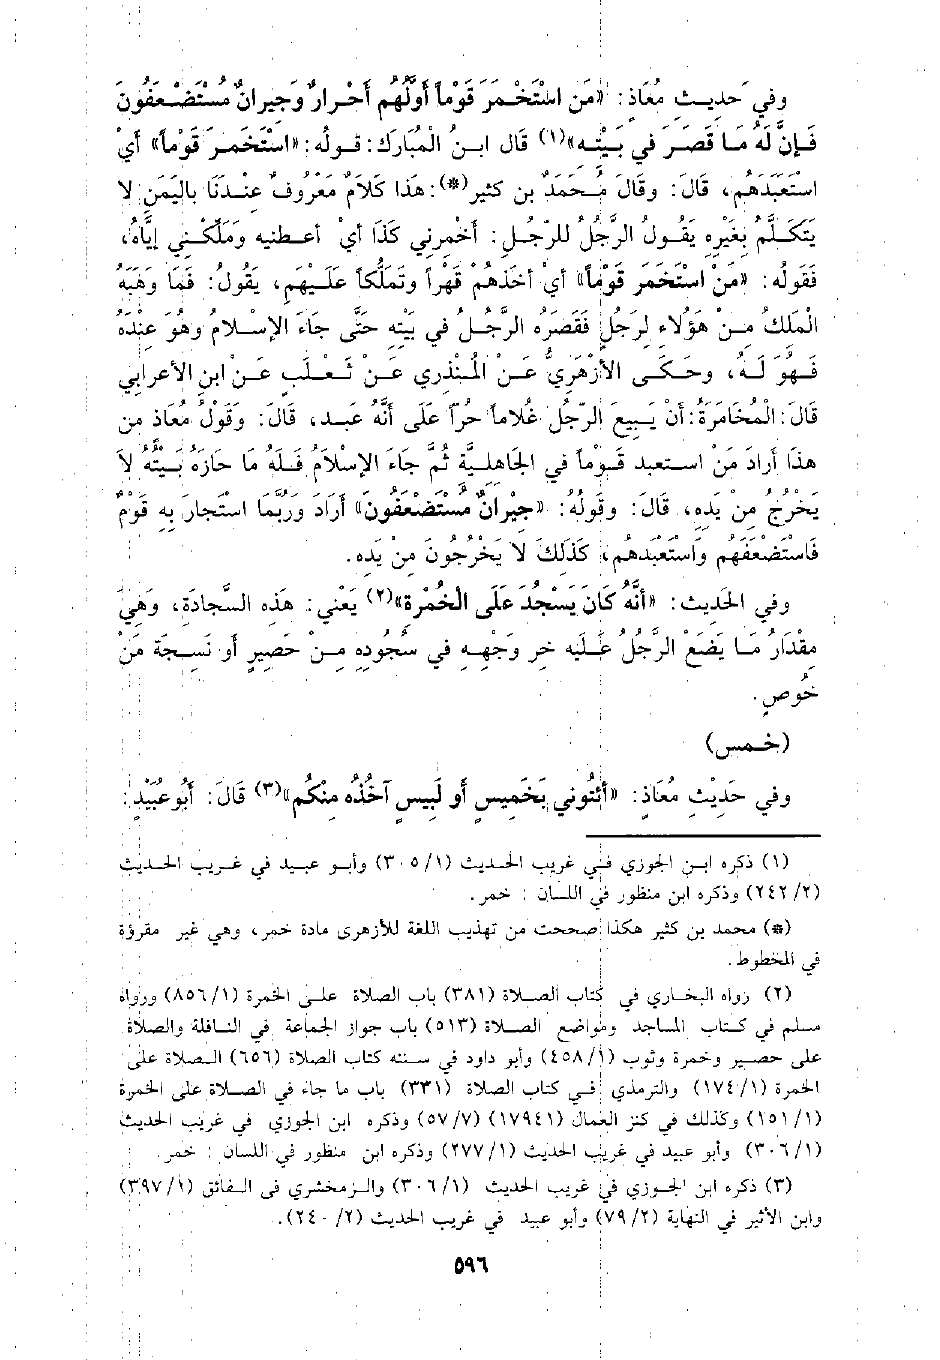 وفي حَديث مُعَاذ: «مَن اسْتَخْمَرَ قَوْماً أَوَّلُهُم أَحْرارٌ وَجيرانٌ مُسْتَضْعَفُونَ
فَإنَّ لَهُ مَا قَصَرَ في بَيْتِه»(١) قال ابنُ الْمُبارَك: قولُه: «اسْتَخْمَرَ قَوْماً» أيْ
استَعْبَدَهُم، قَالَ: وقَالَ مُحَمَدٌ بن كثير(*): هَذا كَلَامٌ مَعْرُوفٌ عنْدَنَا باليَمَن لا
يَتَكَلَّمُ بغَيْرِه يَقُولُ الرَّجُلُ للرّجُلِ: أخْمِرني كَذَا أيْ أعطنيه وَملّكْني إيَّاهُ،
فَقَولُه: «مَنْ استَخْمَرَ قَوْماً» أيْ أخَذَهُمْ قَهْراً وتَملُّكاً عَلَيْهِم، يَقُولُ: فَمَا وَهَبَهُ
الْمَلكُ مِنْ هَؤُلاء لرَجُلٍ فَقَصَرَه الرَّجُلُ في بَيْته حَتَّى جَاءَ الإسْلام وهُوَ عنْدَهُ
فَهُوَ لَهُ، وحَكَى الأزْهَريُّ عَنْ الْمُنْذري عَنْ ثَعْلب عَنْ ابن الأعرابي
قَالَ: الْمُخَامَرَةُ: أنْ يَبيعَ الرّجُل غُلاماً حُرّاً عَلَى أنَّهُ عَبد، قَالَ: وَقَولُ مُعَاذ من
هذَا أرادَ مَنْ استعبد قَوْماً في الجَاهليَّة ثُمَّ جَاءَ الإسْلامُ فَلَهُ مَا حَازَهُ بَيْتُهُ لاَ
يَخْرُجُ منْ يَده، قَالَ: وقَولُهُ: «جيْرانٌ مُسْتَضْعَفُونَ» أرَادَ وَرُبَّمَا استَجارَ به قَوْمٌ
فَاسْتَضْعَفَهُم وَاستَعْبَدهُم، كَذَلكَ لا يَخْرُجُونَ منْ يَده.
وفي الحَديث: «أنَّهُ كَانَ يَسْجُدُ عَلَى الخُمْرة»(٢) يَعْني: هَذه السَّجادَة، وَهيَ
مقْدَارُ مَا يَضَعْ الرَّجُلُ عَلَيه حر وَجْهِهِ في سُجُودِهِ مِنْ حَصيرٍ أو نَسيجَة مَنْ
خُوصٍ.
(خمس)
وفي حَديْثِ مُعَاذٍ: «أئْتُوني بَخَميسٍ أو لَبِيسٍ آخُذُه منْكُم»(٣) قَالَ: أبُوعُبَيْدٍ:
(١) ذكره ابن الجوزي في غريب الحديث (٣٠٥/١) وأبو عبيد في غريب الحديث
(٢٤٢/٢) وذكره ابن منظور في اللسان : خمر.
(*) محمد بن كثير هكذا صححت من تهذيب اللغة للأزهرى مادة خمر، وهي غير مقرؤة
في المخطوط.
(٢) رواه البخاري في كتاب الصلاة (٣٨١) باب الصلاة على الخمرة (٨٥٦/١) ورواه
مسلم في كتاب المساجد ومواضع الصلاة (٥١٣) باب جواز الجماعة في النافلة والصلاة
على حصير وخمرة وثوب (٤٥٨/١) وأبو داود في سننه كتاب الصلاة (٦٥٦) الصلاة على
الخمرة (١٧٤/١) والترمذي في كتاب الصلاة (٣٣١) باب ما جاء في الصلاة على الخمرة
(١٥١/١) وكذلك في كنز العمال (١٧٩٤١) (٥٧/٧) وذكره ابن الجوزي في غريب الحديث
(٣٠٦/١) وأبو عبيد في غريب الحديث (٢٧٧/١) وذكره ابن منظور في اللسان : خمر.
(٣) ذكره ابن الجوزي في غريب الحديث (٣٠٦/١) والزمخشري فى الفائق (٣٩٧/١)
وابن الأثير في النهاية (٧٩/٢) وأبو عبيد في غريب الحديث (٢٤٠/٢).
٥٩٦